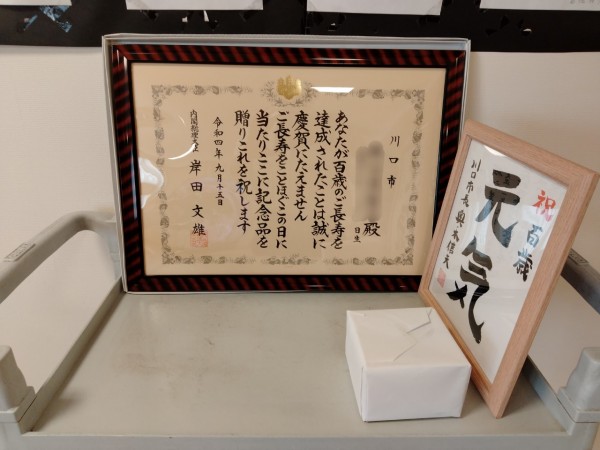 川口市
殿
日生
あなたが百歳のご長寿を
達成されたことは誠に
慶賀にたえません
ご長寿をことほぐこの日に
当たりここに記念品を
贈りこれを祝します
令和四年九月十五日
内閣総理大臣 岸田文雄
祝百歳
元気
川口市長 奥ノ木信夫